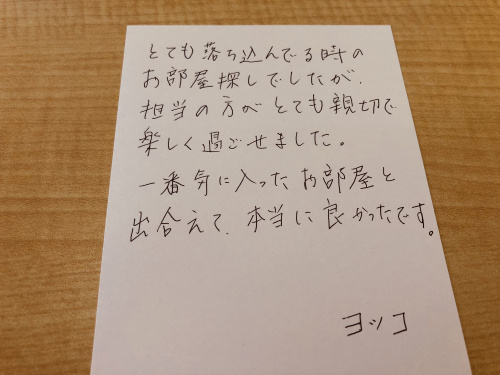 とても落ち込んでる時の
お部屋探しでしたが、
担当の方がとても親切で
楽しく過ごせました。
一番気に入ったお部屋と
出合えて、本当に良かったです。
ヨッコ